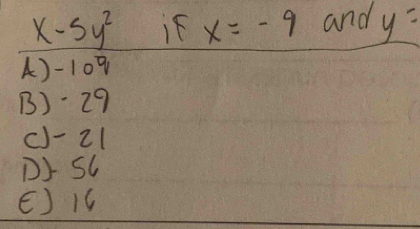 x - 5y² if x = - 9 and y =
A) - 109
B) - 29
C) - 21
D) - 56
E) 16